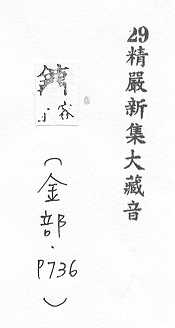 29精嚴新集大藏音
(金部·P736)